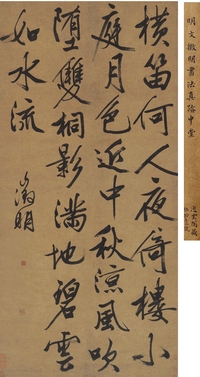 橫笛何人夜倚樓小
庭月色近中秋涼風吹
墮雙桐影滿地碧雲
如水流
徵明
明文徵明書法真蹟中堂